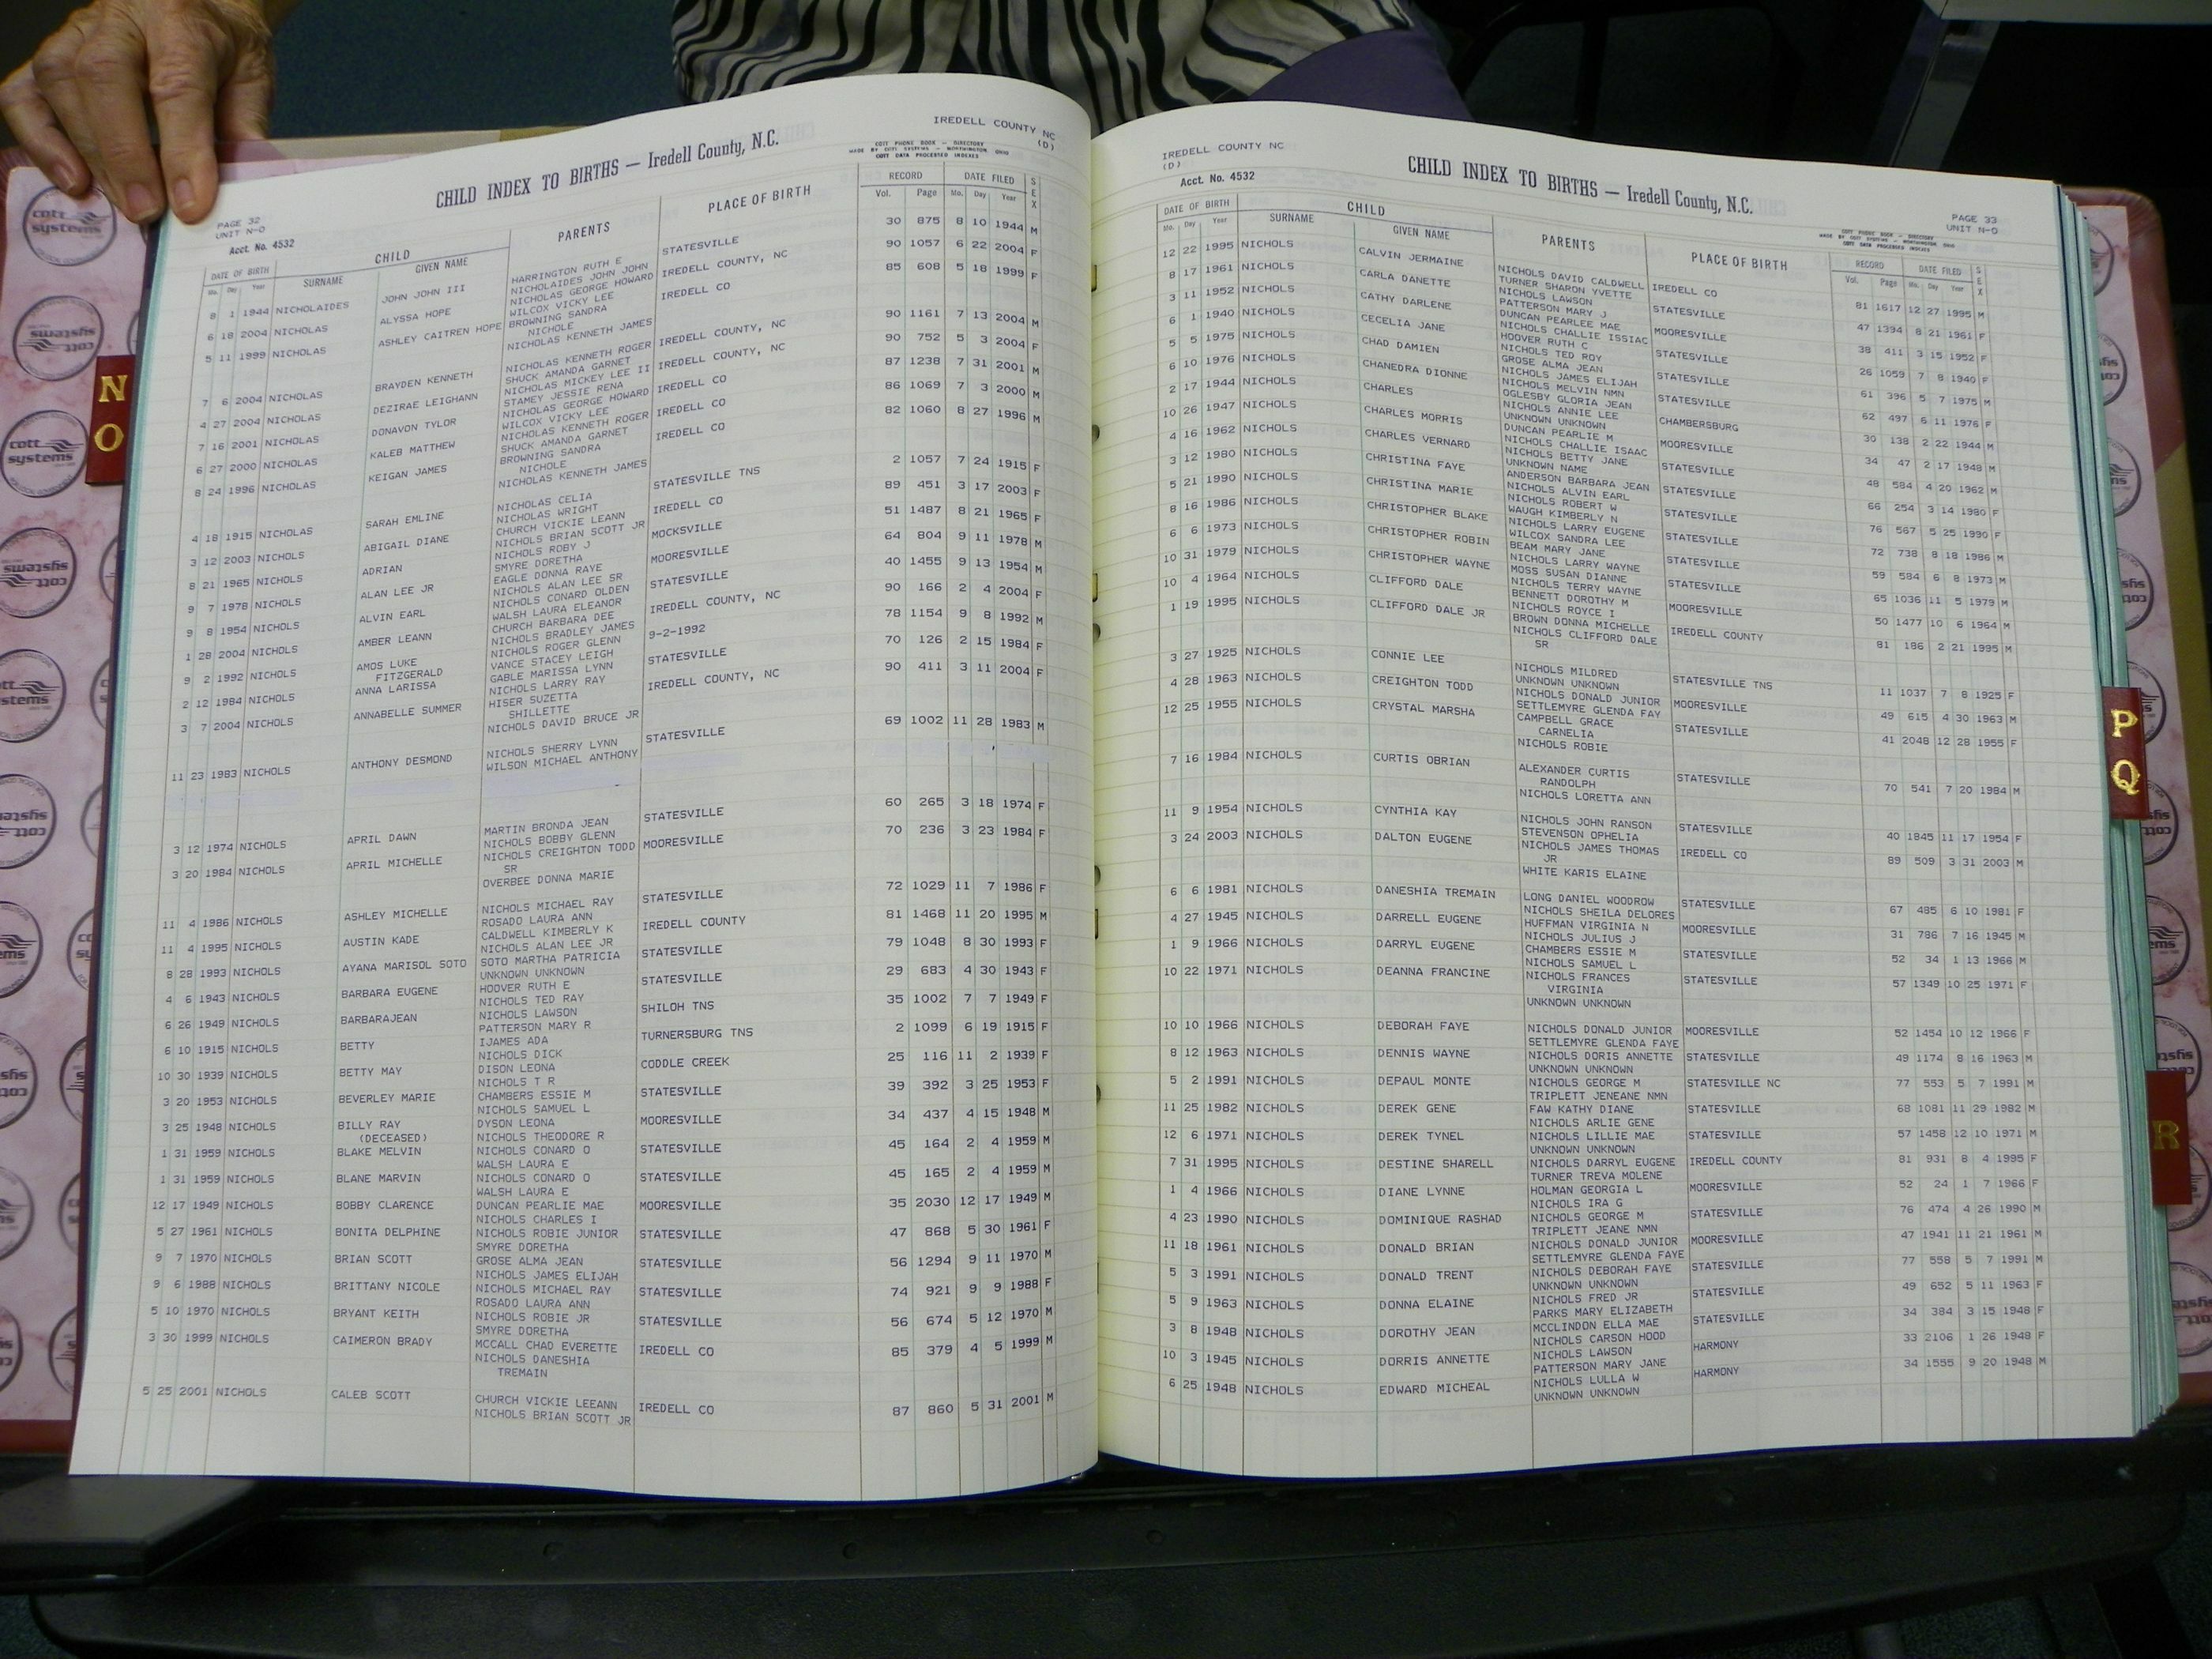 IREDELL COUNTY NC
(D)
CHILD INDEX TO BIRTHS — Iredell County, N.C.
COTT PHONE BOOK — DIRECTORY
MADE BY COTT SYSTEMS — WORTHINGTON OHIO
COTT DATA PROCESSED INDEXES
PAGE 32
UNIT N-O
Acct. No. 4532
DATE OF BIRTH CHILD PARENTS PLACE OF BIRTH RECORD DATE FILED SEX
Mo. Day Year SURNAME GIVEN NAME Vol. Page Mo. Day Year
8 1 1944 NICHOLAIDES JOHN JOHN III HARRINGTON RUTH E STATESVILLE 30 875 8 10 1944 M
NICHOLAIDES JOHN JOHN
6 18 2004 NICHOLAS ALYSSA HOPE NICHOLAS GEORGE HOWARD IREDELL COUNTY, NC 90 1057 6 22 2004 F
WILCOX VICKY LEE
5 11 1999 NICHOLAS ASHLEY CAITREN HOPE BROWNING SANDRA IREDELL CO 85 608 5 18 1999 F
NICHOLE
NICHOLAS KENNETH JAMES
7 6 2004 NICHOLAS BRAYDEN KENNETH NICHOLAS KENNETH ROGER IREDELL COUNTY, NC 90 1161 7 13 2004 M
SHUCK AMANDA GARNET
4 27 2004 NICHOLAS DEZIRAE LEIGHANN NICHOLAS MICKEY LEE II IREDELL COUNTY, NC 90 752 5 3 2004 F
STAMEY JESSIE RENA
7 16 2001 NICHOLAS DONAVON TYLOR NICHOLAS GEORGE HOWARD IREDELL CO 87 1238 7 31 2001 M
WILCOX VICKY LEE
6 27 2000 NICHOLAS KALEB MATTHEW NICHOLAS KENNETH ROGER IREDELL CO 86 1069 7 3 2000 M
SHUCK AMANDA GARNET
8 24 1996 NICHOLAS KEIGAN JAMES BROWNING SANDRA IREDELL CO 82 1060 8 27 1996 M
NICHOLE
NICHOLAS KENNETH JAMES
4 18 1915 NICHOLAS SARAH EMLINE NICHOLAS CELIA STATESVILLE TNS 2 1057 7 24 1915 F
NICHOLAS WRIGHT
3 12 2003 NICHOLS ABIGAIL DIANE CHURCH VICKIE LEANN IREDELL CO 89 451 3 17 2003 F
NICHOLS BRIAN SCOTT JR
8 21 1965 NICHOLS ADRIAN NICHOLS ROBY J MOCKSVILLE 51 1487 8 21 1965 F
SMYRE DORETHA
9 7 1978 NICHOLS ALAN LEE JR EAGLE DONNA RAYE MOORESVILLE 64 804 9 11 1978 M
NICHOLS ALAN LEE SR
9 8 1954 NICHOLS ALVIN EARL NICHOLS CONARD OLDEN STATESVILLE 40 1455 9 13 1954 M
WALSH LAURA ELEANOR
1 28 2004 NICHOLS AMBER LEANN CHURCH BARBARA DEE IREDELL COUNTY, NC 90 166 2 4 2004 F
NICHOLS BRADLEY JAMES
9 2 1992 NICHOLS AMOS LUKE NICHOLS ROGER GLENN 9-2-1992 78 1154 9 8 1992 M
FITZGERALD VANCE STACEY LEIGH
2 12 1984 NICHOLS ANNA LARISSA GABLE MARISSA LYNN STATESVILLE 70 126 2 15 1984 F
NICHOLS LARRY RAY
3 7 2004 NICHOLS ANNABELLE SUMMER HISER SUZETTA IREDELL COUNTY, NC 90 411 3 11 2004 F
SHILLETTE
NICHOLS DAVID BRUCE JR
11 23 1983 NICHOLS ANTHONY DESMOND NICHOLS SHERRY LYNN STATESVILLE 69 1002 11 28 1983 M
WILSON MICHAEL ANTHONY
3 12 1974 NICHOLS APRIL DAWN MARTIN BRONDA JEAN STATESVILLE 60 265 3 18 1974 F
NICHOLS BOBBY GLENN
3 20 1984 NICHOLS APRIL MICHELLE NICHOLS CREIGHTON TODD MOORESVILLE 70 236 3 23 1984 F
SR
OVERBEE DONNA MARIE
11 4 1986 NICHOLS ASHLEY MICHELLE NICHOLS MICHAEL RAY STATESVILLE 72 1029 11 7 1986 F
ROSADO LAURA ANN
11 4 1995 NICHOLS AUSTIN KADE CALDWELL KIMBERLY K IREDELL COUNTY 81 1468 11 20 1995 M
NICHOLS ALAN LEE JR
8 28 1993 NICHOLS AYANA MARISOL SOTO SOTO MARTHA PATRICIA STATESVILLE 79 1048 8 30 1993 F
UNKNOWN UNKNOWN
4 6 1943 NICHOLS BARBARA EUGENE HOOVER RUTH E STATESVILLE 29 683 4 30 1943 F
NICHOLS TED RAY
6 26 1949 NICHOLS BARBARAJEAN NICHOLS LAWSON SHILOH TNS 35 1002 7 7 1949 F
PATTERSON MARY R
6 10 1915 NICHOLS BETTY IJAMES ADA TURNERSBURG TNS 2 1099 6 19 1915 F
NICHOLS DICK
10 30 1939 NICHOLS BETTY MAY DISON LEONA CODDLE CREEK 25 116 11 2 1939 F
NICHOLS T R
3 20 1953 NICHOLS BEVERLEY MARIE CHAMBERS ESSIE M STATESVILLE 39 392 3 25 1953 F
NICHOLS SAMUEL L
3 25 1948 NICHOLS BILLY RAY DYSON LEONA MOORESVILLE 34 437 4 15 1948 M
(DECEASED) NICHOLS THEODORE R
1 31 1959 NICHOLS BLAKE MELVIN NICHOLS CONARD O STATESVILLE 45 164 2 4 1959 M
WALSH LAURA E
1 31 1959 NICHOLS BLANE MARVIN NICHOLS CONARD O STATESVILLE 45 165 2 4 1959 M
WALSH LAURA E
12 17 1949 NICHOLS BOBBY CLARENCE DUNCAN PEARLIE MAE MOORESVILLE 35 2030 12 17 1949 M
NICHOLS CHARLES I
5 27 1961 NICHOLS BONITA DELPHINE NICHOLS ROBIE JUNIOR STATESVILLE 47 868 5 30 1961 F
SMYRE DORETHA
9 7 1970 NICHOLS BRIAN SCOTT GROSE ALMA JEAN STATESVILLE 56 1294 9 11 1970 M
NICHOLS JAMES ELIJAH
9 6 1988 NICHOLS BRITTANY NICOLE NICHOLS MICHAEL RAY STATESVILLE 74 921 9 9 1988 F
ROSADO LAURA ANN
5 10 1970 NICHOLS BRYANT KEITH NICHOLS ROBIE JR STATESVILLE 56 674 5 12 1970 M
SMYRE DORETHA
3 30 1999 NICHOLS CAIMERON BRADY MCCALL CHAD EVERETTE IREDELL CO 85 379 4 5 1999 M
NICHOLS DANESHIA
TREMAIN
5 25 2001 NICHOLS CALEB SCOTT CHURCH VICKIE LEEANN IREDELL CO 87 860 5 31 2001 M
NICHOLS BRIAN SCOTT JR
IREDELL COUNTY NC
(D)
Acct. No. 4532
CHILD INDEX TO BIRTHS — Iredell County, N.C.
PAGE 33
UNIT N-O
COTT PHONE BOOK — DIRECTORY
MADE BY COTT SYSTEMS — WORTHINGTON OHIO
COTT DATA PROCESSED INDEXES
DATE OF BIRTH CHILD PARENTS PLACE OF BIRTH RECORD DATE FILED SEX
Mo. Day Year SURNAME GIVEN NAME Vol. Page Mo. Day Year
12 22 1995 NICHOLS CALVIN JERMAINE NICHOLS DAVID CALDWELL IREDELL CO 81 1617 12 27 1995 M
TURNER SHARON YVETTE
8 17 1961 NICHOLS CARLA DANETTE NICHOLS LAWSON STATESVILLE 47 1394 8 21 1961 F
PATTERSON MARY J
3 11 1952 NICHOLS CATHY DARLENE DUNCAN PEARLEE MAE MOORESVILLE 38 411 3 15 1952 F
NICHOLS CHALLIE ISSIAC
6 1 1940 NICHOLS CECELIA JANE HOOVER RUTH C STATESVILLE 26 1059 7 8 1940 F
NICHOLS TED ROY
5 5 1975 NICHOLS CHAD DAMIEN GROSE ALMA JEAN STATESVILLE 61 396 5 7 1975 M
NICHOLS JAMES ELIJAH
6 10 1976 NICHOLS CHANEDRA DIONNE NICHOLS MELVIN NMN STATESVILLE 62 497 6 11 1976 F
OGLESBY GLORIA JEAN
2 17 1944 NICHOLS CHARLES NICHOLS ANNIE LEE CHAMBERSBURG 30 138 2 22 1944 M
UNKNOWN UNKNOWN
10 26 1947 NICHOLS CHARLES MORRIS DUNCAN PEARLIE M MOORESVILLE 34 47 2 17 1948 M
NICHOLS CHALLIE ISAAC
4 16 1962 NICHOLS CHARLES VERNARD NICHOLS BETTY JANE STATESVILLE 48 584 4 20 1962 M
UNKNOWN NAME
3 12 1980 NICHOLS CHRISTINA FAYE ANDERSON BARBARA JEAN STATESVILLE 66 254 3 14 1980 F
NICHOLS ALVIN EARL
5 21 1990 NICHOLS CHRISTINA MARIE NICHOLS ROBERT W STATESVILLE 76 567 5 25 1990 F
WAUGH KIMBERLY N
8 16 1986 NICHOLS CHRISTOPHER BLAKE NICHOLS LARRY EUGENE STATESVILLE 72 738 8 18 1986 M
WILCOX SANDRA LEE
6 6 1973 NICHOLS CHRISTOPHER ROBIN BEAM MARY JANE STATESVILLE 59 584 6 8 1973 M
NICHOLS LARRY WAYNE
10 31 1979 NICHOLS CHRISTOPHER WAYNE MOSS SUSAN DIANNE STATESVILLE 65 1036 11 5 1979 M
NICHOLS TERRY WAYNE
10 4 1964 NICHOLS CLIFFORD DALE BENNETT DOROTHY M MOORESVILLE 50 1477 10 6 1964 M
NICHOLS ROYCE I
1 19 1995 NICHOLS CLIFFORD DALE JR BROWN DONNA MICHELLE IREDELL COUNTY 81 186 2 21 1995 M
NICHOLS CLIFFORD DALE
SR
3 27 1925 NICHOLS CONNIE LEE NICHOLS MILDRED STATESVILLE TNS 11 1037 7 8 1925 F
UNKNOWN UNKNOWN
4 28 1963 NICHOLS CREIGHTON TODD NICHOLS DONALD JUNIOR MOORESVILLE 49 615 4 30 1963 M
SETTLEMYRE GLENDA FAY
12 25 1955 NICHOLS CRYSTAL MARSHA CAMPBELL GRACE STATESVILLE 41 2048 12 28 1955 F
CARNELIA
NICHOLS ROBIE
7 16 1984 NICHOLS CURTIS OBRIAN ALEXANDER CURTIS STATESVILLE 70 541 7 20 1984 M
RANDOLPH
NICHOLS LORETTA ANN
11 9 1954 NICHOLS CYNTHIA KAY NICHOLS JOHN RANSON STATESVILLE 40 1845 11 17 1954 F
STEVENSON OPHELIA
3 24 2003 NICHOLS DALTON EUGENE NICHOLS JAMES THOMAS IREDELL CO 89 509 3 31 2003 M
JR
WHITE KARIS ELAINE
6 6 1981 NICHOLS DANESHIA TREMAIN LONG DANIEL WOODROW STATESVILLE 67 485 6 10 1981 F
NICHOLS SHEILA DELORES
4 27 1945 NICHOLS DARRELL EUGENE HUFFMAN VIRGINIA N MOORESVILLE 31 786 7 16 1945 M
NICHOLS JULIUS J
1 9 1966 NICHOLS DARRYL EUGENE CHAMBERS ESSIE M STATESVILLE 52 34 1 13 1966 M
NICHOLS SAMUEL L
10 22 1971 NICHOLS DEANNA FRANCINE NICHOLS FRANCES STATESVILLE 57 1349 10 25 1971 F
VIRGINIA
UNKNOWN UNKNOWN
10 10 1966 NICHOLS DEBORAH FAYE NICHOLS DONALD JUNIOR MOORESVILLE 52 1454 10 12 1966 F
SETTLEMYRE GLENDA FAYE
8 12 1963 NICHOLS DENNIS WAYNE NICHOLS DORIS ANNETTE STATESVILLE 49 1174 8 16 1963 M
UNKNOWN UNKNOWN
5 2 1991 NICHOLS DEPAUL MONTE NICHOLS GEORGE M STATESVILLE NC 77 553 5 7 1991 M
TRIPLETT JENEANE NMN
11 25 1982 NICHOLS DEREK GENE FAW KATHY DIANE STATESVILLE 68 1081 11 29 1982 M
NICHOLS ARLIE GENE
12 6 1971 NICHOLS DEREK TYNEL NICHOLS LILLIE MAE STATESVILLE 57 1458 12 10 1971 M
UNKNOWN UNKNOWN
7 31 1995 NICHOLS DESTINE SHARELL NICHOLS DARRYL EUGENE IREDELL COUNTY 81 931 8 4 1995 F
TURNER TREVA MOLENE
1 4 1966 NICHOLS DIANE LYNNE HOLMAN GEORGIA L MOORESVILLE 52 24 1 7 1966 F
NICHOLS IRA G
4 23 1990 NICHOLS DOMINIQUE RASHAD NICHOLS GEORGE M STATESVILLE 76 474 4 26 1990 M
TRIPLETT JEANE NMN
11 18 1961 NICHOLS DONALD BRIAN NICHOLS DONALD JUNIOR MOORESVILLE 47 1941 11 21 1961 M
SETTLEMYRE GLENDA FAYE
5 3 1991 NICHOLS DONALD TRENT NICHOLS DEBORAH FAYE STATESVILLE 77 558 5 7 1991 M
UNKNOWN UNKNOWN
5 9 1963 NICHOLS DONNA ELAINE NICHOLS FRED JR STATESVILLE 49 652 5 11 1963 F
PARKS MARY ELIZABETH
3 8 1948 NICHOLS DOROTHY JEAN MCCLINDON ELLA MAE STATESVILLE 34 384 3 15 1948 F
NICHOLS CARSON HOOD
10 3 1945 NICHOLS DORRIS ANNETTE NICHOLS LAWSON HARMONY 33 2106 1 26 1948 F
PATTERSON MARY JANE
6 25 1948 NICHOLS EDWARD MICHEAL NICHOLS LULLA W HARMONY 34 1555 9 20 1948 M
UNKNOWN UNKNOWN
N
O
P
Q
R
cott
systems